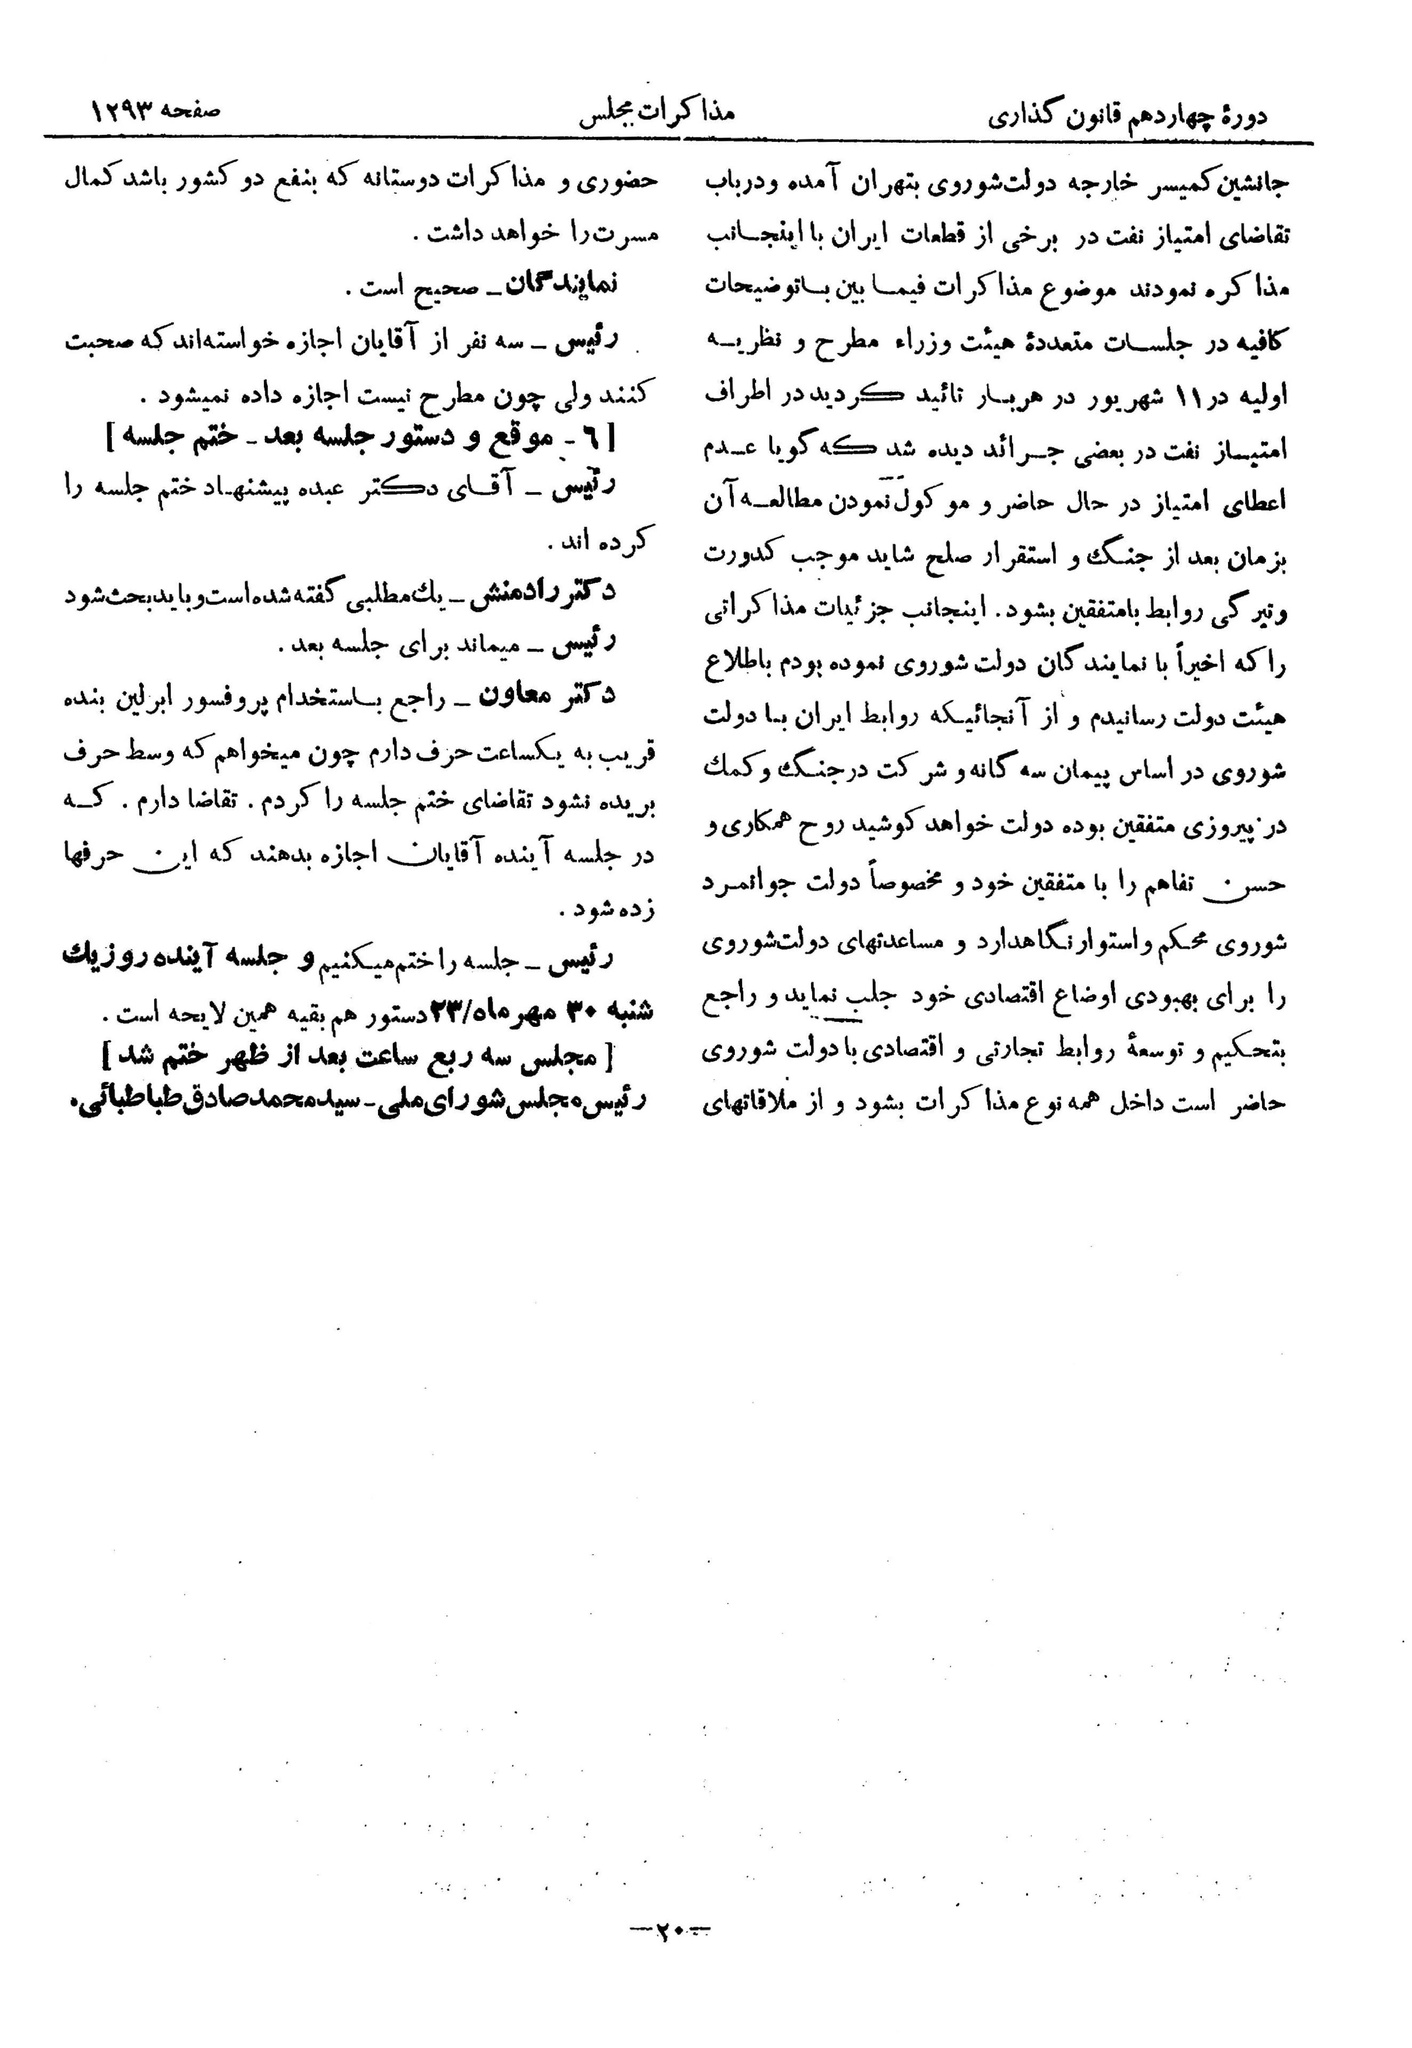 دورهٔ چهاردهم قانون گذاری
مذاکرات مجلس
صفحه ۱۲۹۳
جانشین کمیسر خارجه دولت شوروی بتهران آمده ودرباب
تقاضای امتیاز نفت در برخی از قطعات ایران با اینجانب
مذاکره نمودند موضوع مذاکرات فیما بین باتوضیحات
کافیه در جلسات متعددهٔ هیئت وزراء مطرح و نظریه
اولیه در ۱۱ شهریور در هربار تائید گردید در اطراف
امتیاز نفت در بعضی جرائد دیده شد که گویا عدم
اعطای امتیاز در حال حاضر و موکول نمودن مطالعه آن
بزمان بعد از جنگ و استقرار صلح شاید موجب کدورت
وتیرگی روابط بامتفقین بشود. اینجانب جزئیات مذاکراتی
راکه اخیراً با نمایندگان دولت شوروی نموده بودم باطلاع
هیئت دولت رسانیدم و از آنجائیکه روابط ایران با دولت
شوروی در اساس پیمان سه گانه و شرکت درجنگ وکمک
در پیروزی متفقین بوده دولت خواهد کوشید روح همکاری و
حسن تفاهم را با متفقین خود و مخصوصاً دولت جوانمرد
شوروی محکم واستوار نگاهدارد و مساعدتهای دولت شوروی
را برای بهبودی اوضاع اقتصادی خود جلب نماید و راجع
بتحکیم و توسعهٔ روابط تجارتی و اقتصادی با دولت شوروی
حاضر است داخل همه نوع مذاکرات بشود و از ملاقاتهای
حضوری و مذاکرات دوستانه که بنفع دو کشور باشد کمال
مسرت را خواهد داشت.
نمایندگان ـ صحیح است.
رئیس ـ سه نفر از آقایان اجازه خواسته‌اند که صحبت
کنند ولی چون مطرح نیست اجازه داده نمیشود.
[۶ ـ موقع و دستور جلسه بعد ـ ختم جلسه]
رئیس ـ آقای دکتر عبده پیشنهاد ختم جلسه را
کرده اند.
دکتر رادمنش ـ یك مطلبی گفته شده است و باید بحث شود
رئیس ـ میماند برای جلسه بعد.
دکتر معاون ـ راجع باستخدام پروفسور ابرلین بنده
قریب به یکساعت حرف دارم چون میخواهم که وسط حرف
بریده نشود تقاضای ختم جلسه را کردم. تقاضا دارم. که
در جلسه آینده آقایان اجازه بدهند که این حرفها
زده شود.
رئیس ـ جلسه را ختم میکنیم و جلسه آینده روز یك
شنبه ۳۰ مهر ماه/۲۳ دستور هم بقیه همین لایحه است.
[مجلس سه ربع ساعت بعد از ظهر ختم شد]
رئیس مجلس شورای ملی ـ سید محمد صادق طباطبائی.
—۲۰—